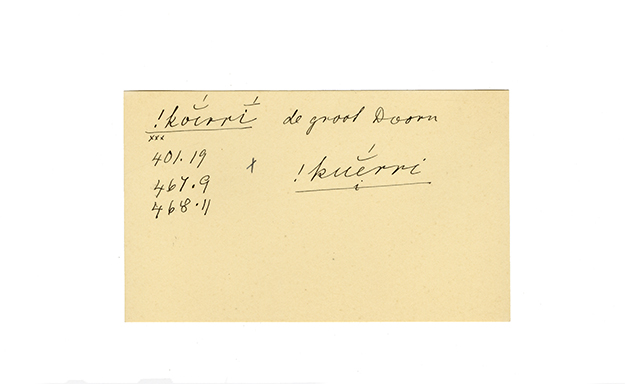 !kŏírrĭ́ de groot Doorn
xxx
401.19
467.9 + !kuĕ́rri
468.11 i